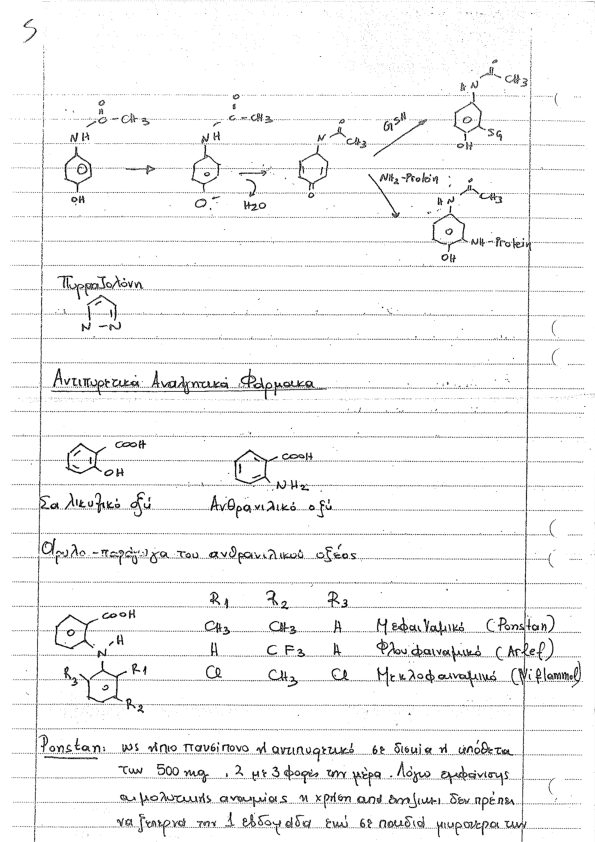 5
O
C-CH3
NH
OH
O
C-CH3
NH
O:-
H2O
O
N
CH3
O
GSH
NH2-Protein
O
H N
CH3
SG
OH
O
H N
CH3
NH-Protein
OH
Πυρραζολόνη
N - N
Αντιπυρετικά Αναλγητικά Φάρμακα
COOH
OH
COOH
NH2
Σαλικυλικό οξύ Ανθρανιλικό οξύ
Αρυλο-παράγωγα του ανθρανιλικού οξέος
R1 R2 R3
CH3 CH3 H Μεφαιναμικό (Ponstan)
H CF3 H Φλουφαιναμικό (Arlef)
Cl CH3 Cl Μεκλοφαιναμικό (Niflammol)
COOH
N H
R3 R1
R2
Ponstan: ως ήπιο παυσίπονο ή αντιπυρετικό σε δισκία ή υπόθετα
των 500 mg, 2 με 3 φορές την μέρα. Λόγω εμφάνισης
αιμολυτικής αναιμίας η χρήση από ενήλικες δεν πρέπει
να ξεπερνά την 1 εβδομάδα ενώ σε παιδιά μικρότερα των